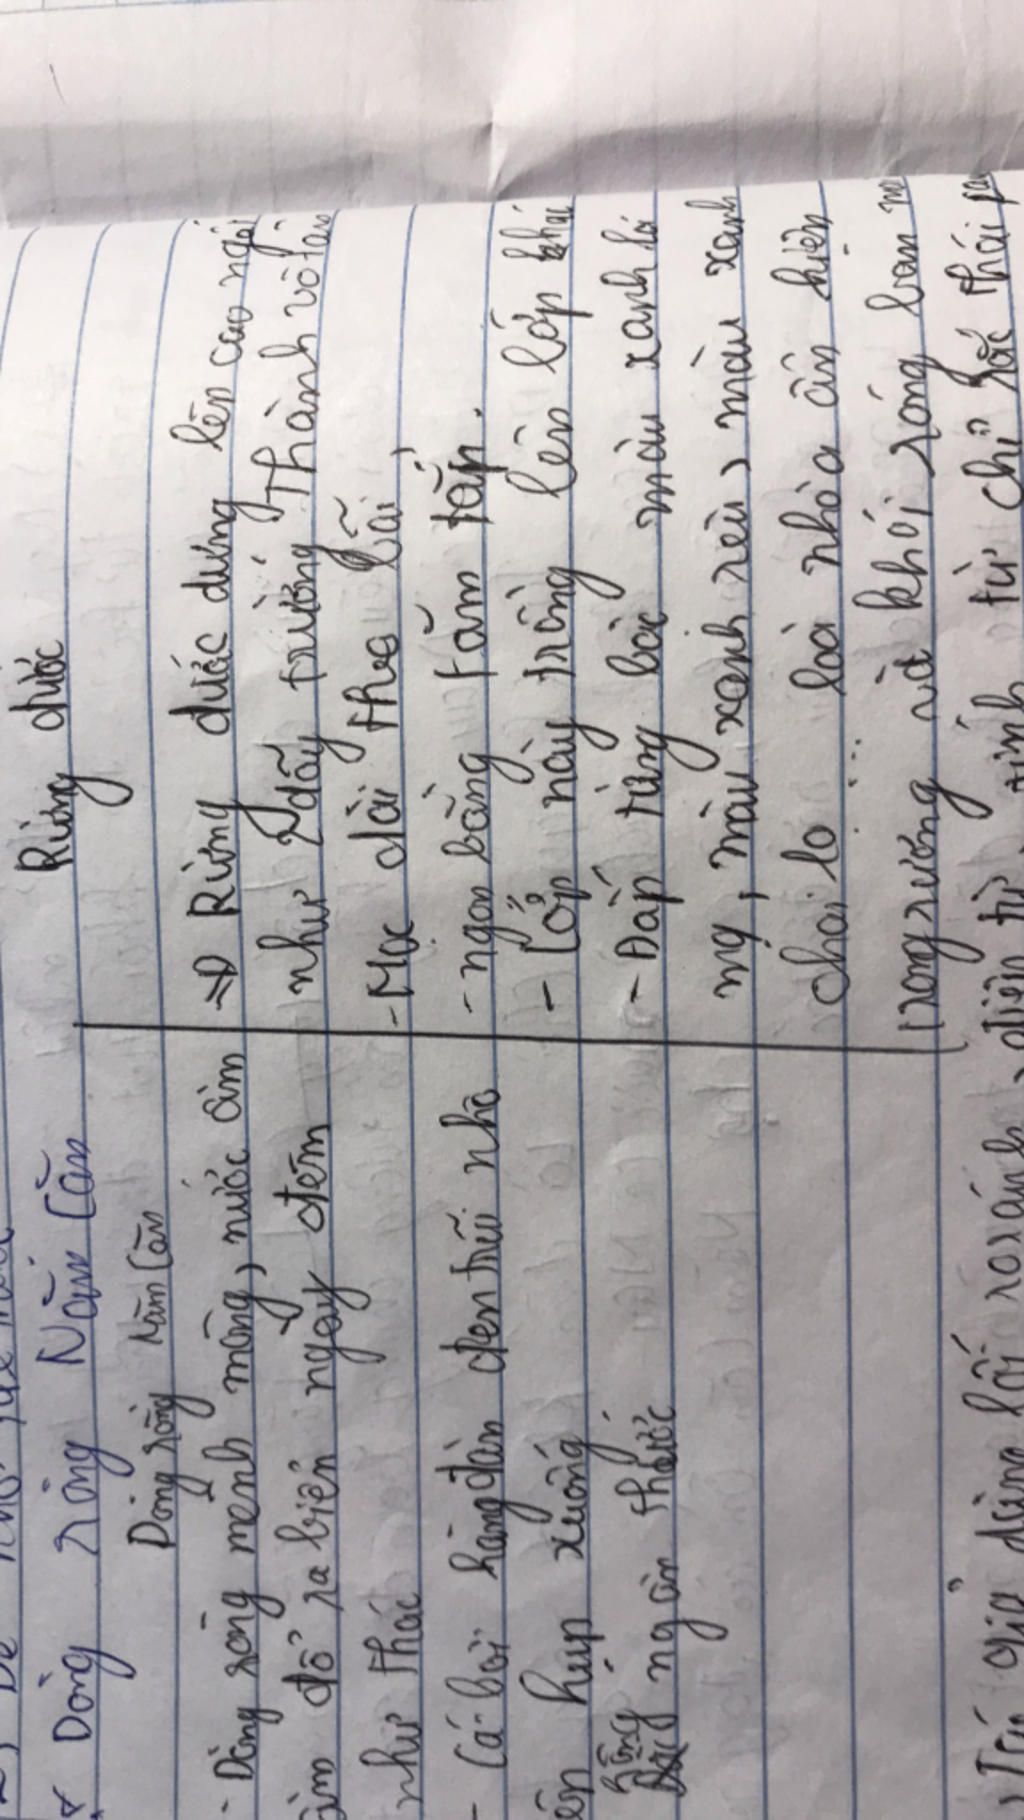 * Dòng sông Năm Căn
Dòng sông Năm Căn
Rừng đước
- Dòng sông mênh mông, nước ầm
ầm đổ ra biển ngày đêm
như thác
- Cá bơi hàng đàn đen trũi nhô
hụp xuống
ngàn thước
=> Rừng đước dựng lên cao ngất
như dãy trường Thành vô tận
- Mọc dài theo bãi
- ngọn bằng tăm tắp.
- Lớp này trồng lên lớp khác
- Đắp từng bậc màu xanh lá
mạ, màu xanh rêu, màu xanh
chai lọ ... lòa nhòa ẩn hiện
trong sương và khói sóng ban
Tác giả dùng lối so sánh, điệu từ, tính từ chỉ sắc thái